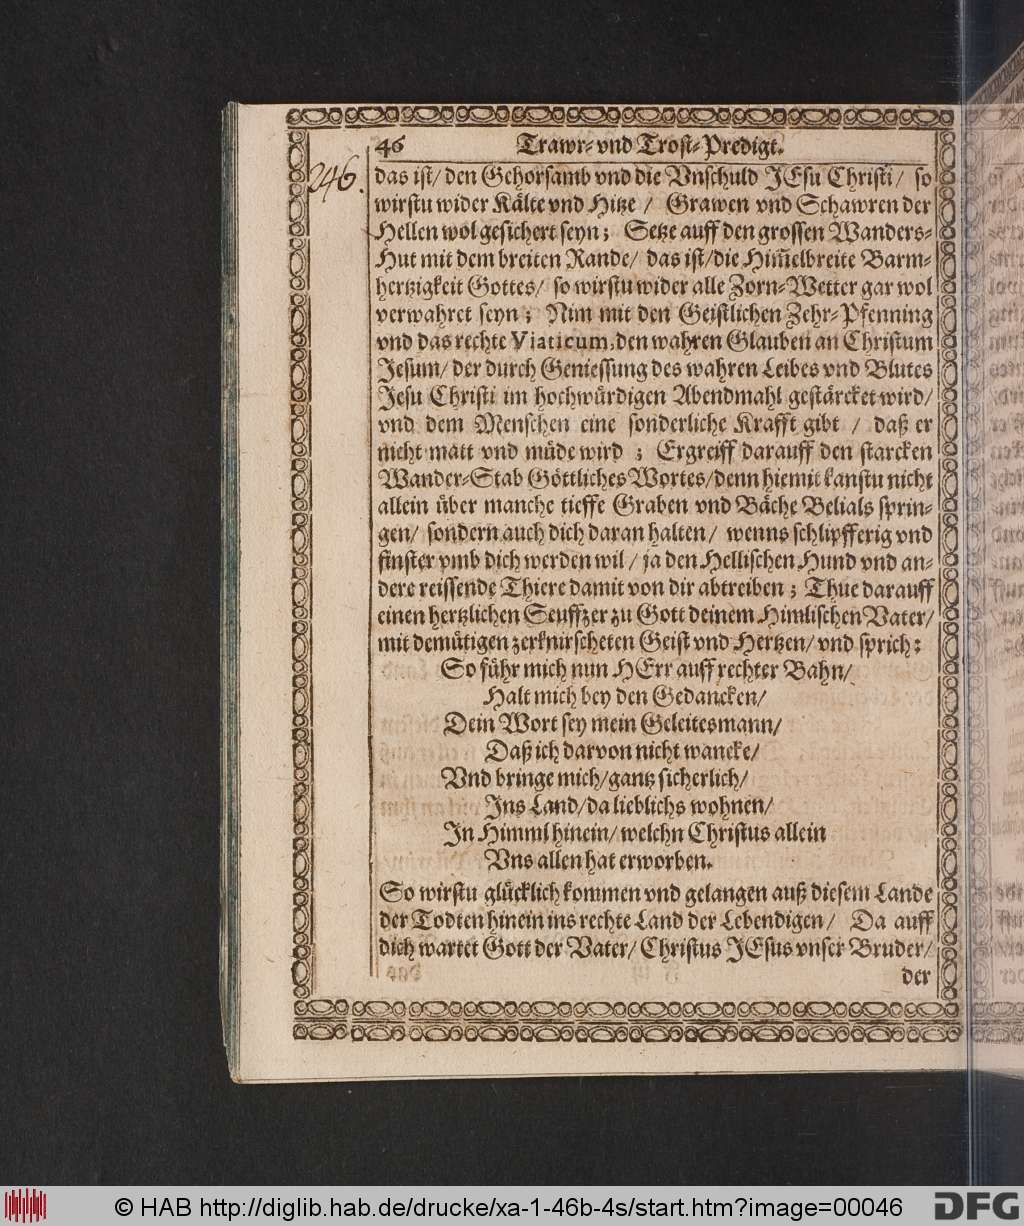 46 Trawr- vnd Trost-Predigt.
246.
das ist/ den Gehorsamb vnd die Vnschuld JEsu Christi/ so
wirstu wider Kälte vnd Hitze / Grawen vnd Schawren der
Hellen wol gesichert seyn; Setze auff den grossen Wanders-
Hut mit dem breiten Rande/ das ist/ die Him̃elbreite Barm-
hertzigkeit Gottes/ so wirstu wider alle Zorn-Wetter gar wol
verwahret seyn; Nim mit den Geistlichen Zehr-Pfenning
vnd das rechte Viaticum, den wahren Glauben an Christum
Jesum/ der durch Geniessung des wahren Leibes vnd Blutes
Jesu Christi im hochwürdigen Abendmahl gestärcket wird/
vnd dem Menschen eine sonderliche Krafft gibt / daß er
nicht matt vnd müde wird ; Ergreiff darauff den starcken
Wander-Stab Göttliches Wortes/ denn hiemit kanstu nicht
allein über manche tieffe Graben vnd Bäche Belials sprin-
gen/ sondern auch dich daran halten/ wenns schlipfferig vnd
finster vmb dich werden wil / ja den Hellischen Hund vnd an-
dere reissende Thiere damit von dir abtreiben; Thue darauff
einen hertzlichen Seuffzer zu Gott deinem Himlischen Vater/
mit demütigen zerknirscheten Geist vnd Hertzen/ vnd sprich:
So führ mich nun HErr auff rechter Bahn/
Halt mich bey den Gedancken/
Dein Wort sey mein Geleitesmann/
Daß ich darvon nicht wancke/
Vnd bringe mich/ gantz sicherlich/
Ins Land/ da lieblichs wohnen/
In Himml hinein/ welchn Christus allein
Vns allen hat erworben.
So wirstu glücklich kommen vnd gelangen auß diesem Lande
der Todten hinein ins rechte Land der Lebendigen/ Da auff
dich wartet Gott der Vater/ Christus JEsus vnser Bruder/
der
© HAB http://diglib.hab.de/drucke/xa-1-46b-4s/start.htm?image=00046
DFG